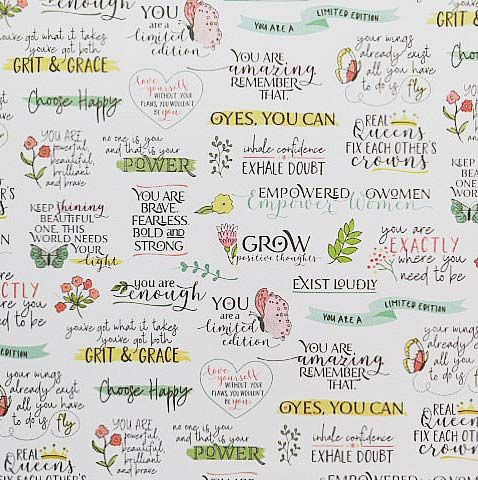 enough
YOU
are a
limited
edition
YOU ARE A
LIMITED EDITION
GRIT & GRACE
you've got what it takes
you've got both
GRIT & GRACE
YOU ARE
amazing
REMEMBER
THAT.
your wings
already exist
all you have
to do is fly
Choose Happy
Love yourself
WITHOUT YOUR
FLAWS, YOU WOULDN'T
BE YOU
YES, YOU CAN.
REAL
Queens
FIX EACH OTHER'S
crowns
YOU ARE
powerful,
beautiful,
brilliant
and brave
no one is you
and that is your
POWER
inhale confidence
EXHALE DOUBT
KEEP shining
BEAUTIFUL
ONE, THIS
WORLD NEEDS
YOUR
light
YOU ARE
BRAVE,
FEARLESS,
BOLD and
STRONG
EMPOWERED WOMEN
Empower Women
GROW
positive thoughts
you are
EXACTLY
where you
need to be
you are
enough
EXIST LOUDLY
YOU
are a
limited
edition
YOU ARE A
LIMITED EDITION
you've got what it takes
you've got both
GRIT & GRACE
YOU ARE
amazing
REMEMBER
THAT.
your wings
already exist
all you have
to do is fly
Choose Happy
Love yourself
WITHOUT YOUR
FLAWS, YOU WOULDN'T
BE YOU
YES, YOU CAN.
REAL
Queens
FIX EACH OTHER'S
crowns
REAL
Queens
FIX EACH OTHER'S
YOU ARE
powerful,
beautiful,
brilliant
and brave
no one is you
and that is your
POWER
inhale confidence
EXHALE DOUBT
EMPOWERED WOMEN